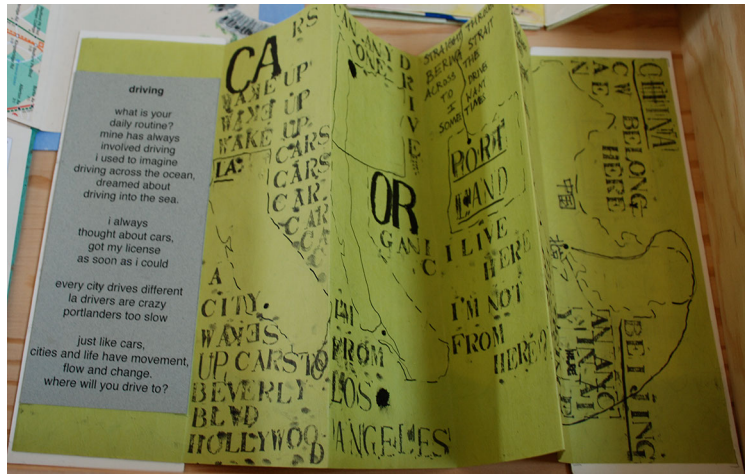 driving
what is your
daily routine?
mine has always
involved driving
i used to imagine
driving across the ocean,
dreamed about
driving into the sea.
i always
thought about cars,
got my license
as soon as i could
every city drives different
la drivers are crazy
portlanders too slow
just like cars,
cities and life have movement,
flow and change.
where will you drive to?
CA
RS
WAKE UP
WAKE UP
WAKE UP
LA
CARS
CARS
CAR
CAR
A
CITY
WAVES
UP CARS TO
BEVERLY
BLVD
HOLLYWOOD
DRIVE
OR
GANIC
I'M
FROM
LOS
ANGELES
STRAIGHT THROUGH
BERING STRAIT
ACROSS THE
TO DRIVE
I WANT
SOMETIMES
PORT
LAND
I LIVE
HERE
I'M NOT
FROM
HERE?
CHINA
BELONG
HERE
中国
BEIJING